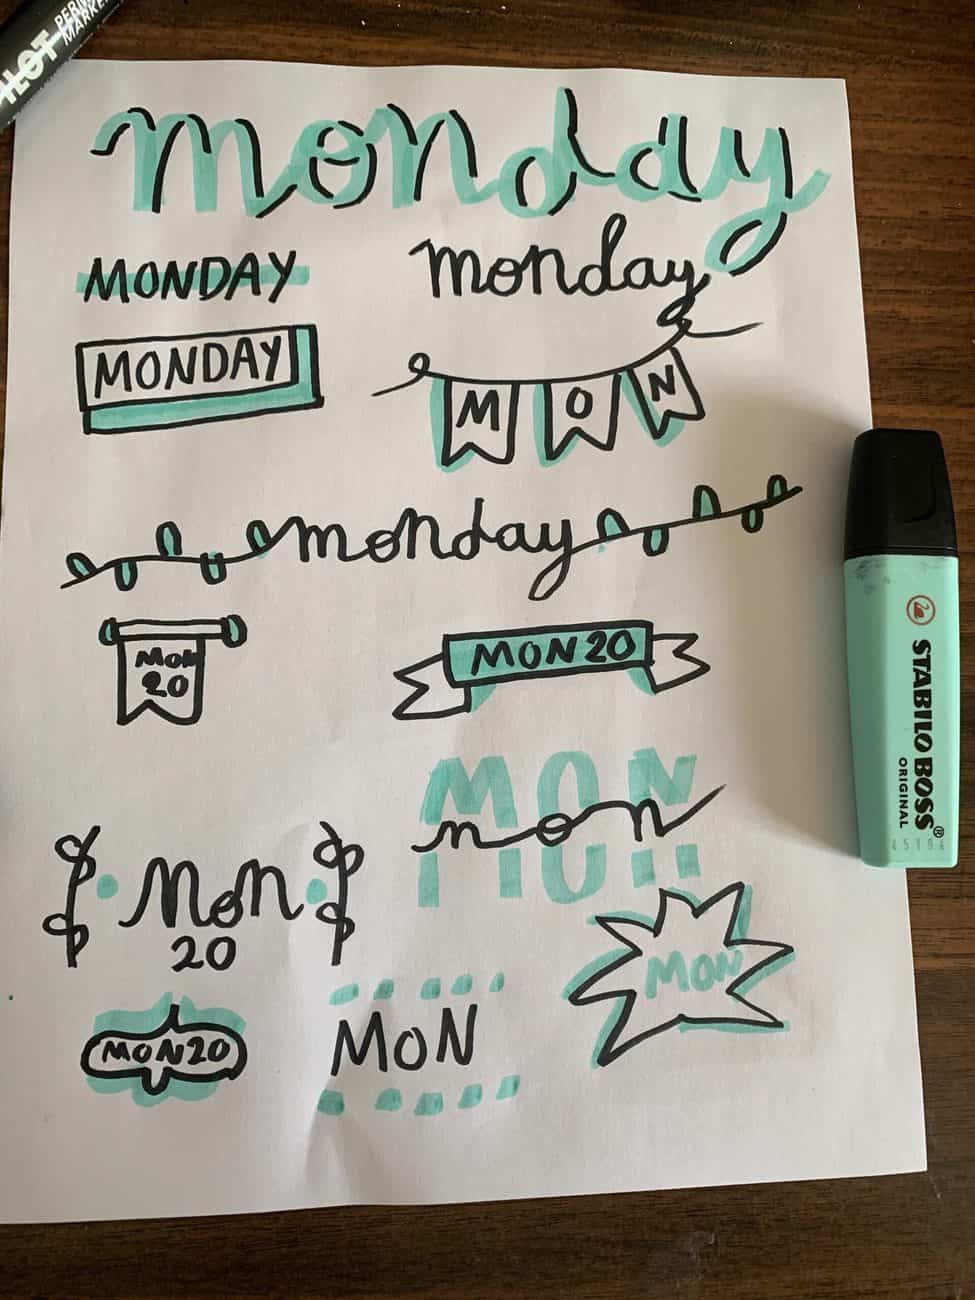 PILOT PERMANENT MARKER
monday
MONDAY
monday
MONDAY
MON
monday
MON
20
MON 20
MON
mon
Mon
20
MON
MON20
MON
STABILO BOSS®
ORIGINAL